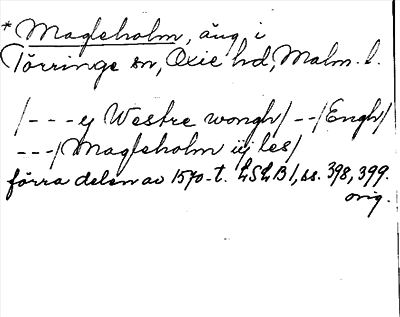 * Magleholm, äng i
Törringe sn, Oxie hd, Malm. l.
/- - - y Westre wongh/ - -/Engh/
- - -/Magleholm iij les/
förra delen av 1570-t. LSLB 1, ss. 398, 399.
orig.